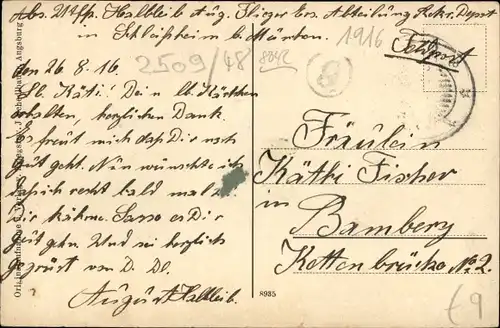 Abs. Utffz. Halbleib Aug. Flieger Ers. Abteilung Rekr. Depot
in Schleißheim b. München.
1916
Feldpost
2509/48
8942
den 26.8.16.
Lb. Käti! Dein lb. Kärtchen
erhalten, herzlichen Dank.
Es freut mich daß Dir noch
gut geht. Nun wünschte ich
daß ich recht bald mal zu
Dir käme. Lasse es Dir
gut gehn. Und sei herzlich
gegrüst von D. Dl.
August Halbleib.
Fräulein
Käthi Fischer
in
Bamberg
Kettenbrücke No. 2.
8935
€9